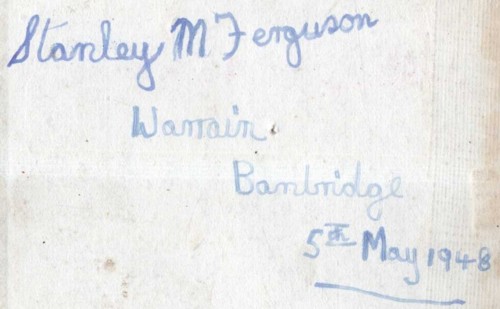 Stanley M Ferguson
Warrain
Banbridge
5th May 1948